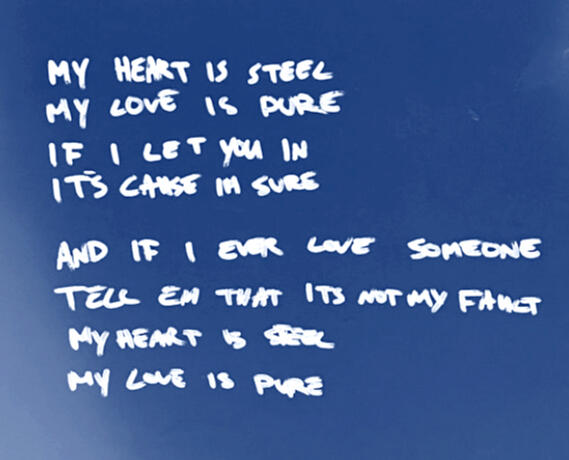 MY HEART IS STEEL
MY LOVE IS PURE
IF I LET YOU IN
IT'S CAUSE IM SURE
AND IF I EVER LOVE SOMEONE
TELL EM THAT ITS NOT MY FAULT
MY HEART IS STEEL
MY LOVE IS PURE